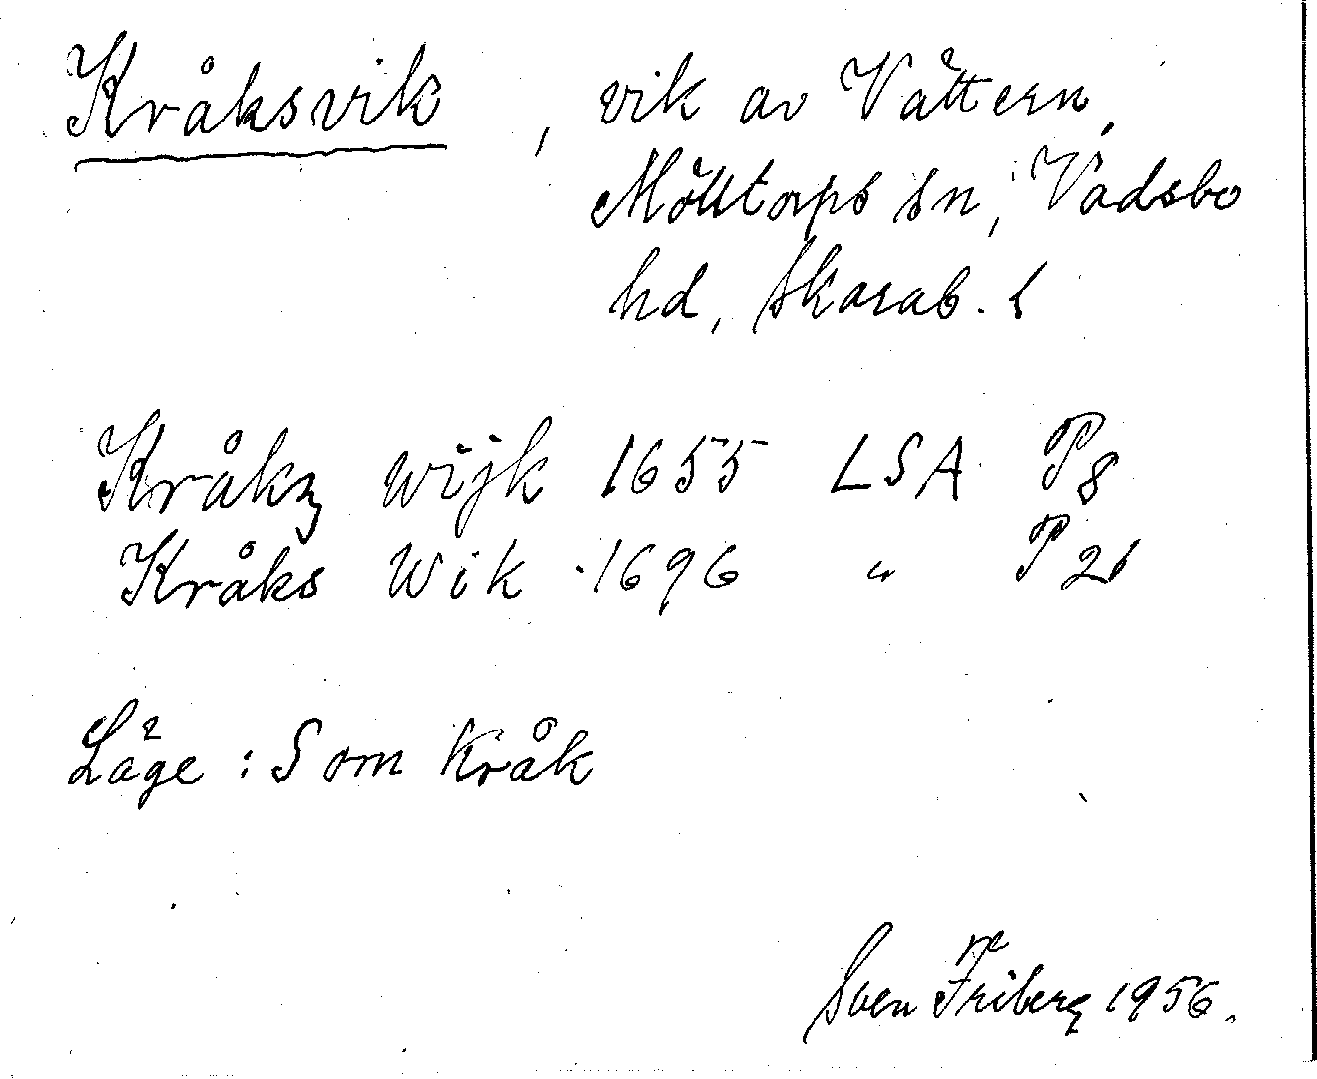 Kråksvik, vik av Vättern,
Mölltorps sn, Vadsbo
hd, Skarab. l
Kråkz wijk 1655 LSA P8
Kråks Wik 1696 " P21
Läge: Som Kråk
Sven Friberg 1956.